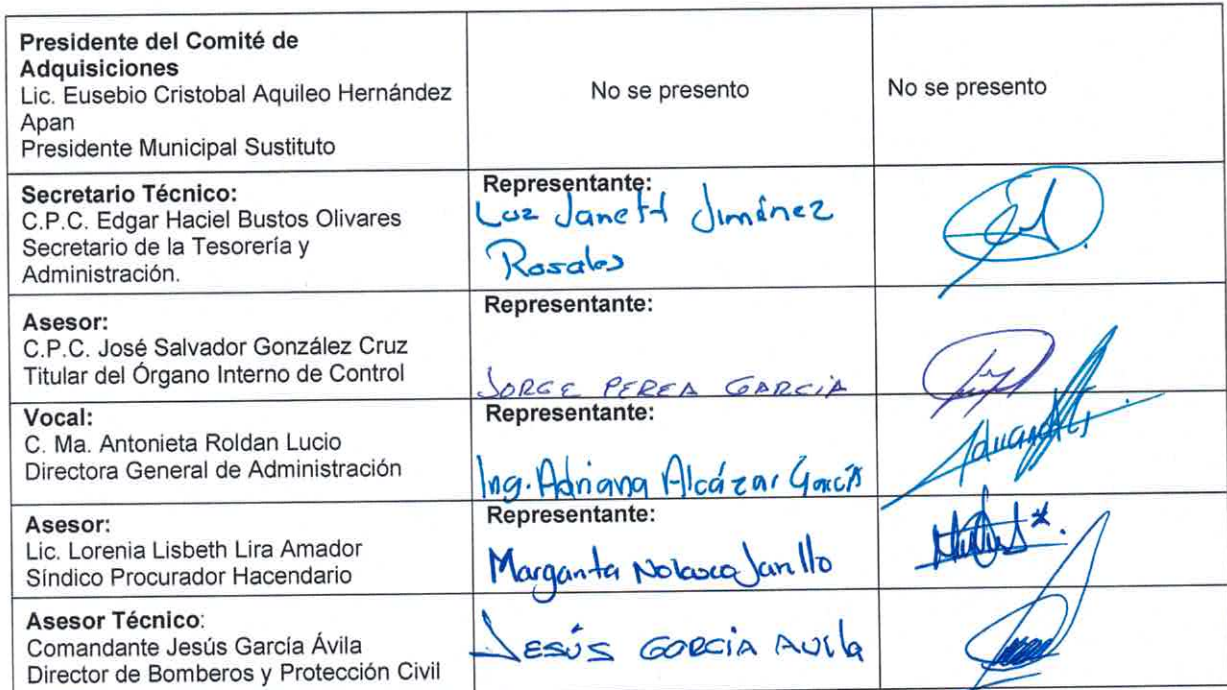 Presidente del Comité de
Adquisiciones
Lic. Eusebio Cristobal Aquileo Hernández
Apan
Presidente Municipal Sustituto
No se presento
No se presento
Secretario Técnico:
C.P.C. Edgar Haciel Bustos Olivares
Secretario de la Tesorería y
Administración.
Representante:
Luz Janett Jiménez
Rosales
Asesor:
C.P.C. José Salvador González Cruz
Titular del Órgano Interno de Control
Representante:
JORGE PEREA GARCIA
Vocal:
C. Ma. Antonieta Roldan Lucio
Directora General de Administración
Representante:
Ing. Adriana Alcázar García
Asesor:
Lic. Lorenia Lisbeth Lira Amador
Síndico Procurador Hacendario
Representante:
Margarita Nolasco Jarillo
Asesor Técnico:
Comandante Jesús García Ávila
Director de Bomberos y Protección Civil
JESÚS GARCIA AVILA